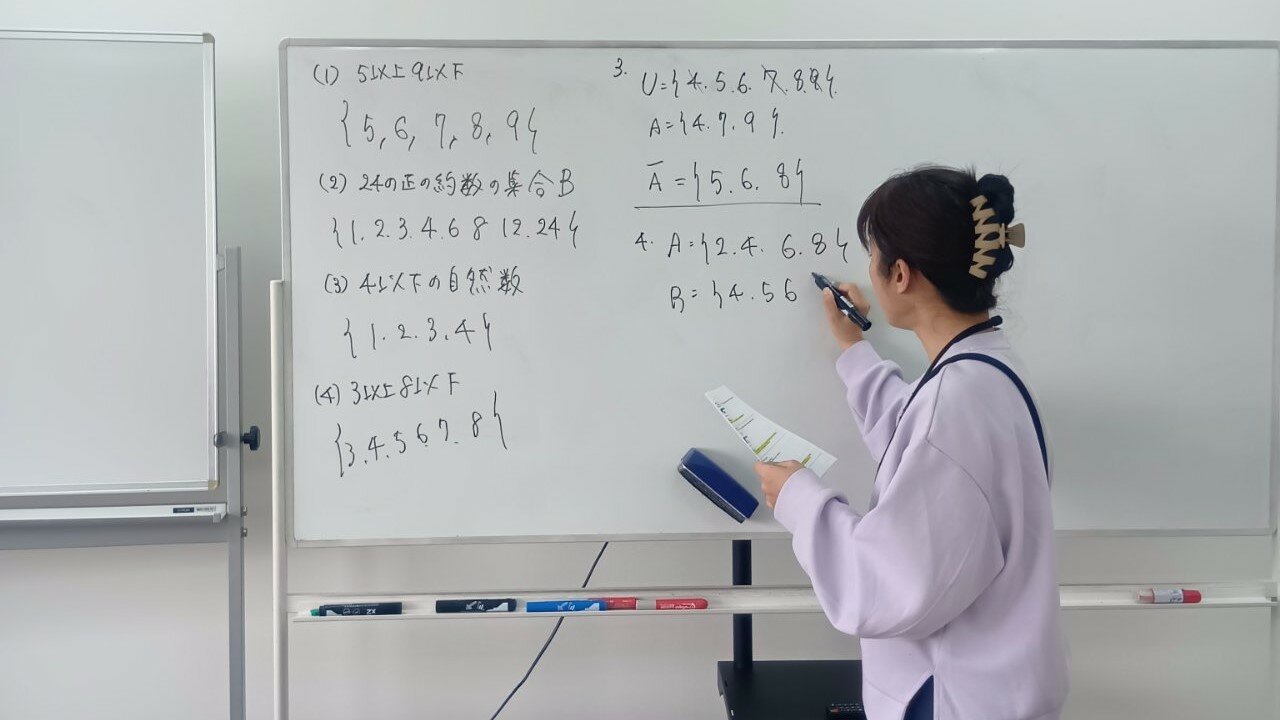 (1) 5以上9以下
{5, 6, 7, 8, 9}
(2) 24の正の約数の集合B
{1. 2. 3. 4. 6 8 12. 24}
(3) 4以下の自然数
{1. 2. 3. 4}
(4) 3以上8以下
{3. 4. 5 6 7. 8}
3. U={4. 5. 6. 7. 8. 9}.
A={4. 7. 9}.
A̅={5. 6. 8}
4. A={2. 4. 6. 8}
B={4. 5 6